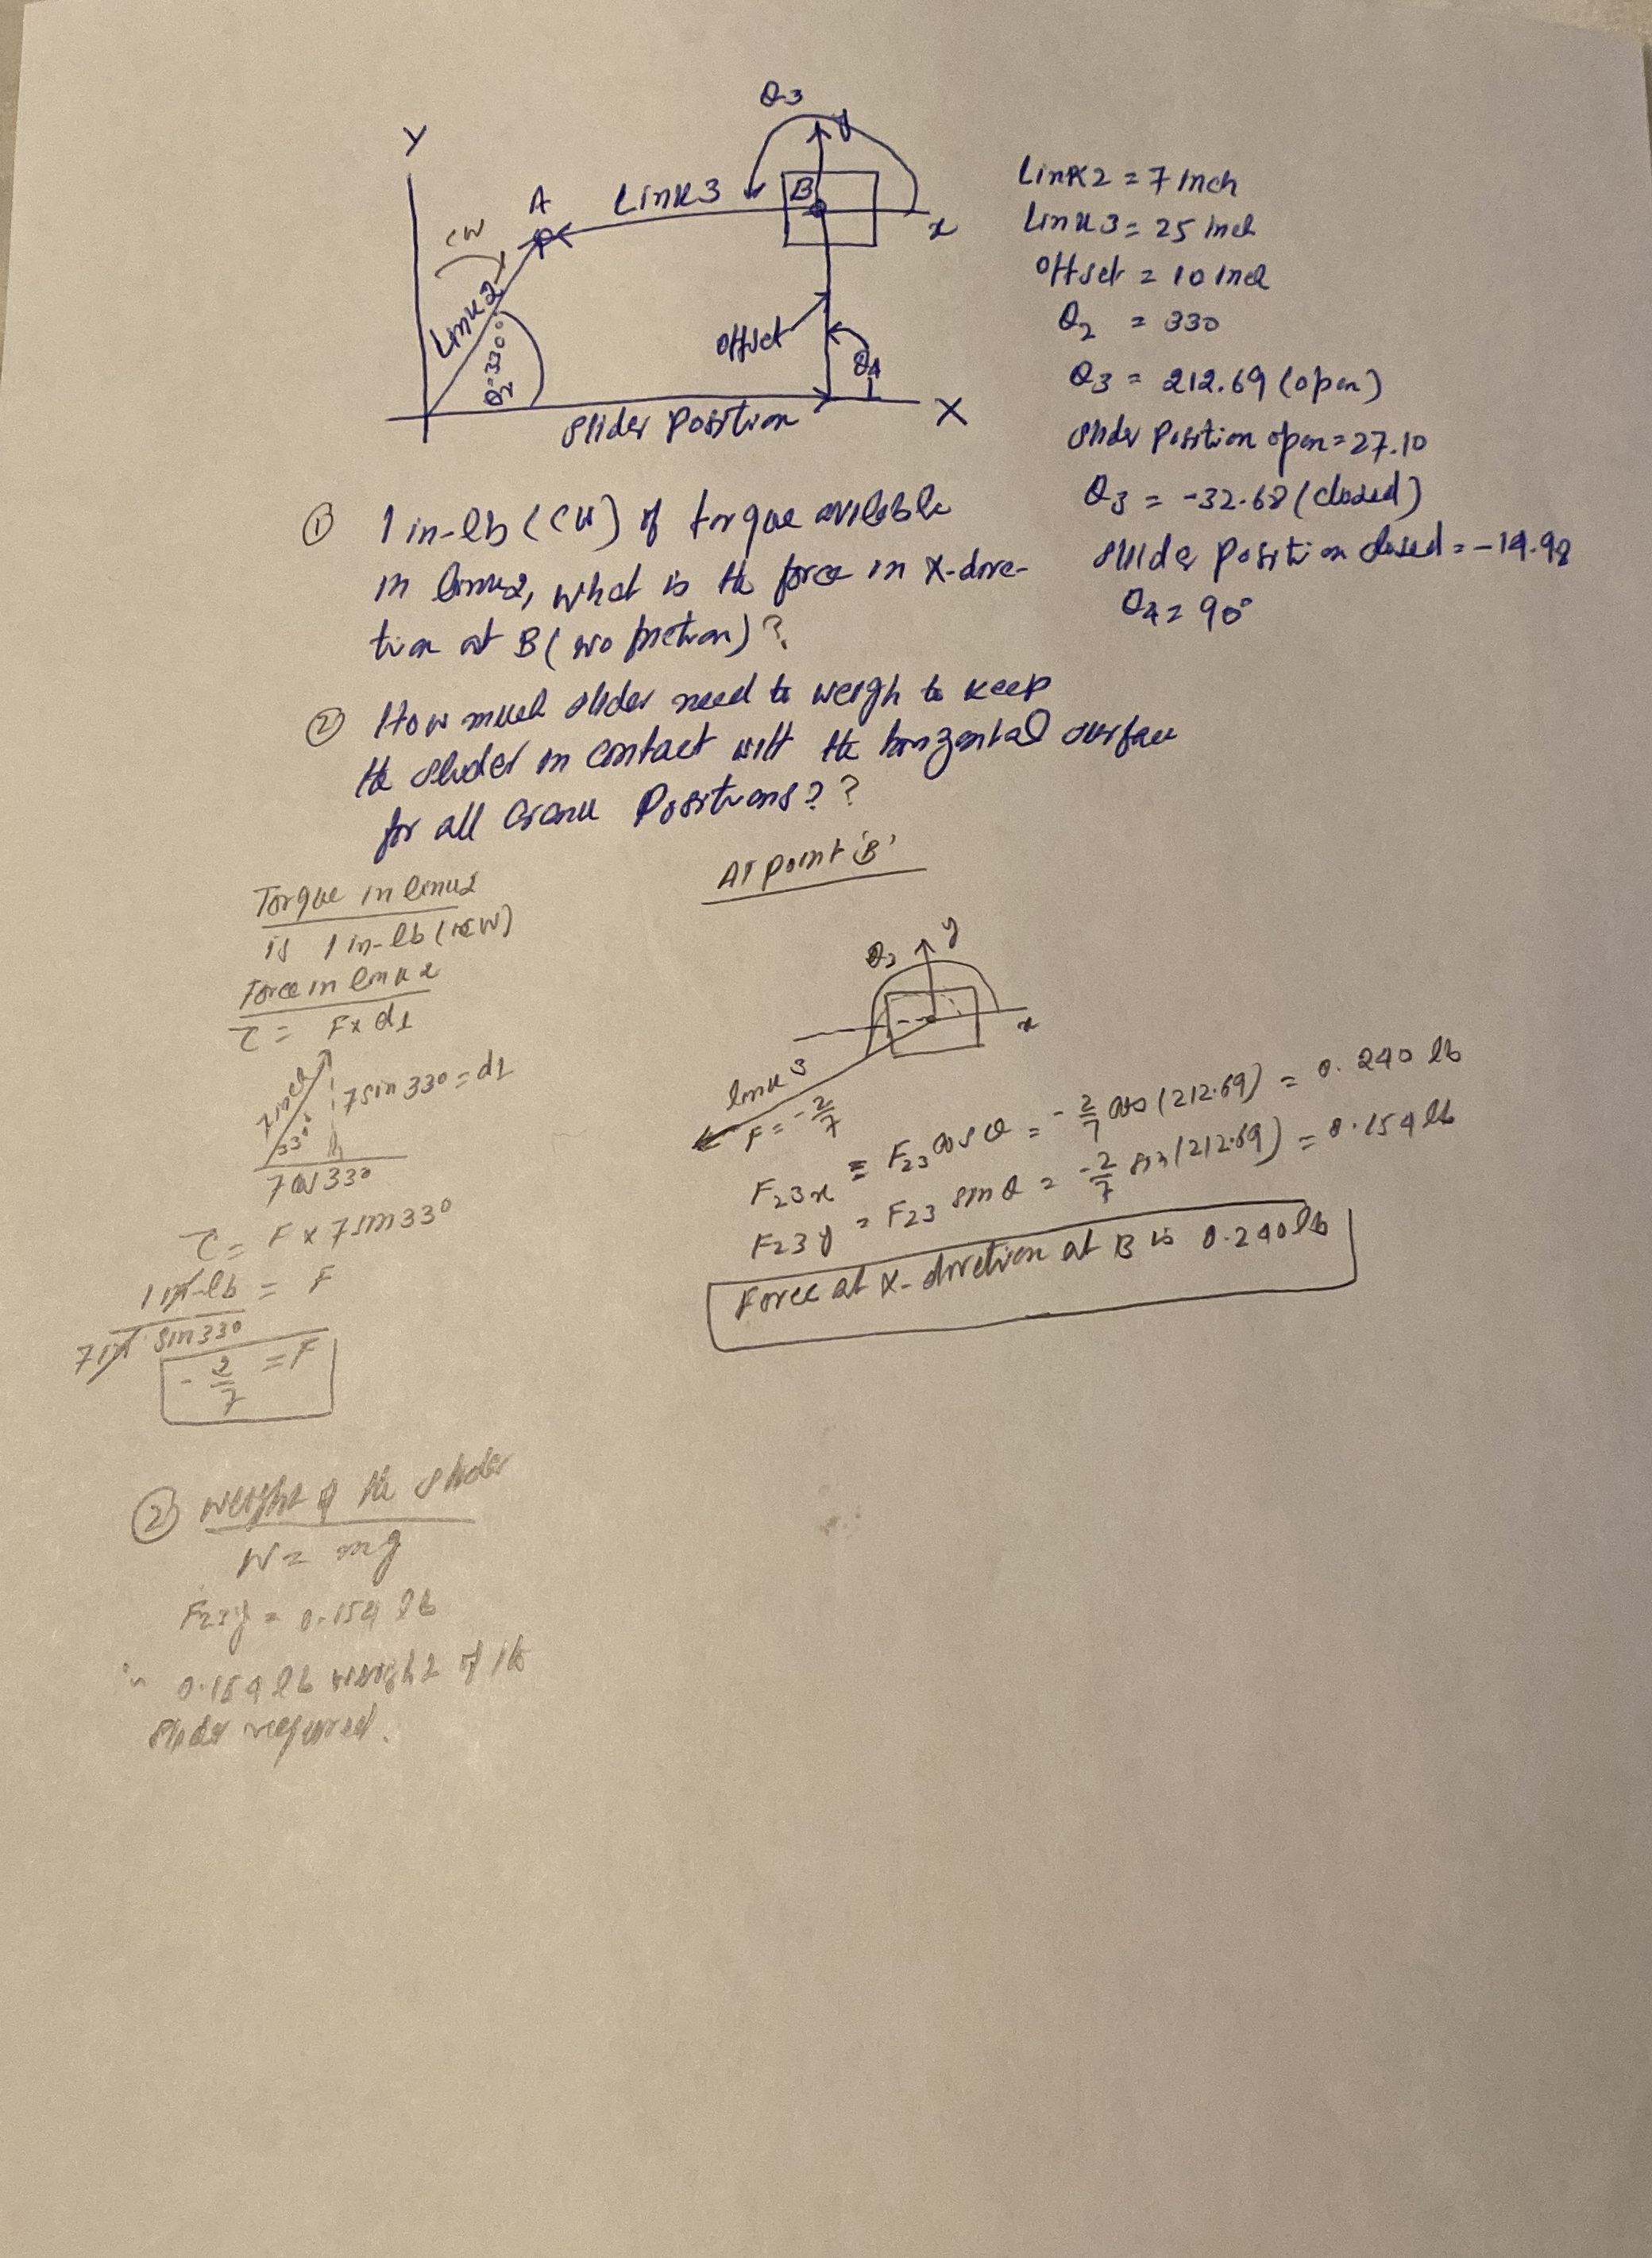 Y
θ3
y
A
Link3
B
x
CW
Link2
θ2=330°
offset
θ4
Slider Position
X
Link2 = 7 inch
Link3 = 25 inch
Offset = 10 inch
θ2 = 330
θ3 = 212.69 (open)
Slider Position open = 27.10
θ3 = -32.68 (closed)
Slider Position closed = -14.98
θ4 = 90°
① 1 in-lb (CW) of torque avilable
in link2, what is the force in X-dire-
tion at B (no friction)?
② How much slider need to weigh to keep
the slider in contact with the horizontal surface
for all Crank Positions??
Torque in link2
is 1 in-lb
Force in link 2
τ = F x d⊥
7 inch
7 sin 330 = d⊥
330
7 cos 330
τ = F x 7 sin 330
1 in-lb = F
7 in sin 330
- 2/7 = F
AT point 'B'
y
x
link 3
F = - 2/7
F23x = F23 cos θ = - 2/7 cos (212.69) = 0.240 lb
F23y = F23 sin θ = - 2/7 sin (212.69) = 0.154 lb
Force at X-diretion at B is 0.240 lb
② Weight of the slider
W = mg
F23y = 0.154 lb
∴ 0.154 lb weight of the
slider required.